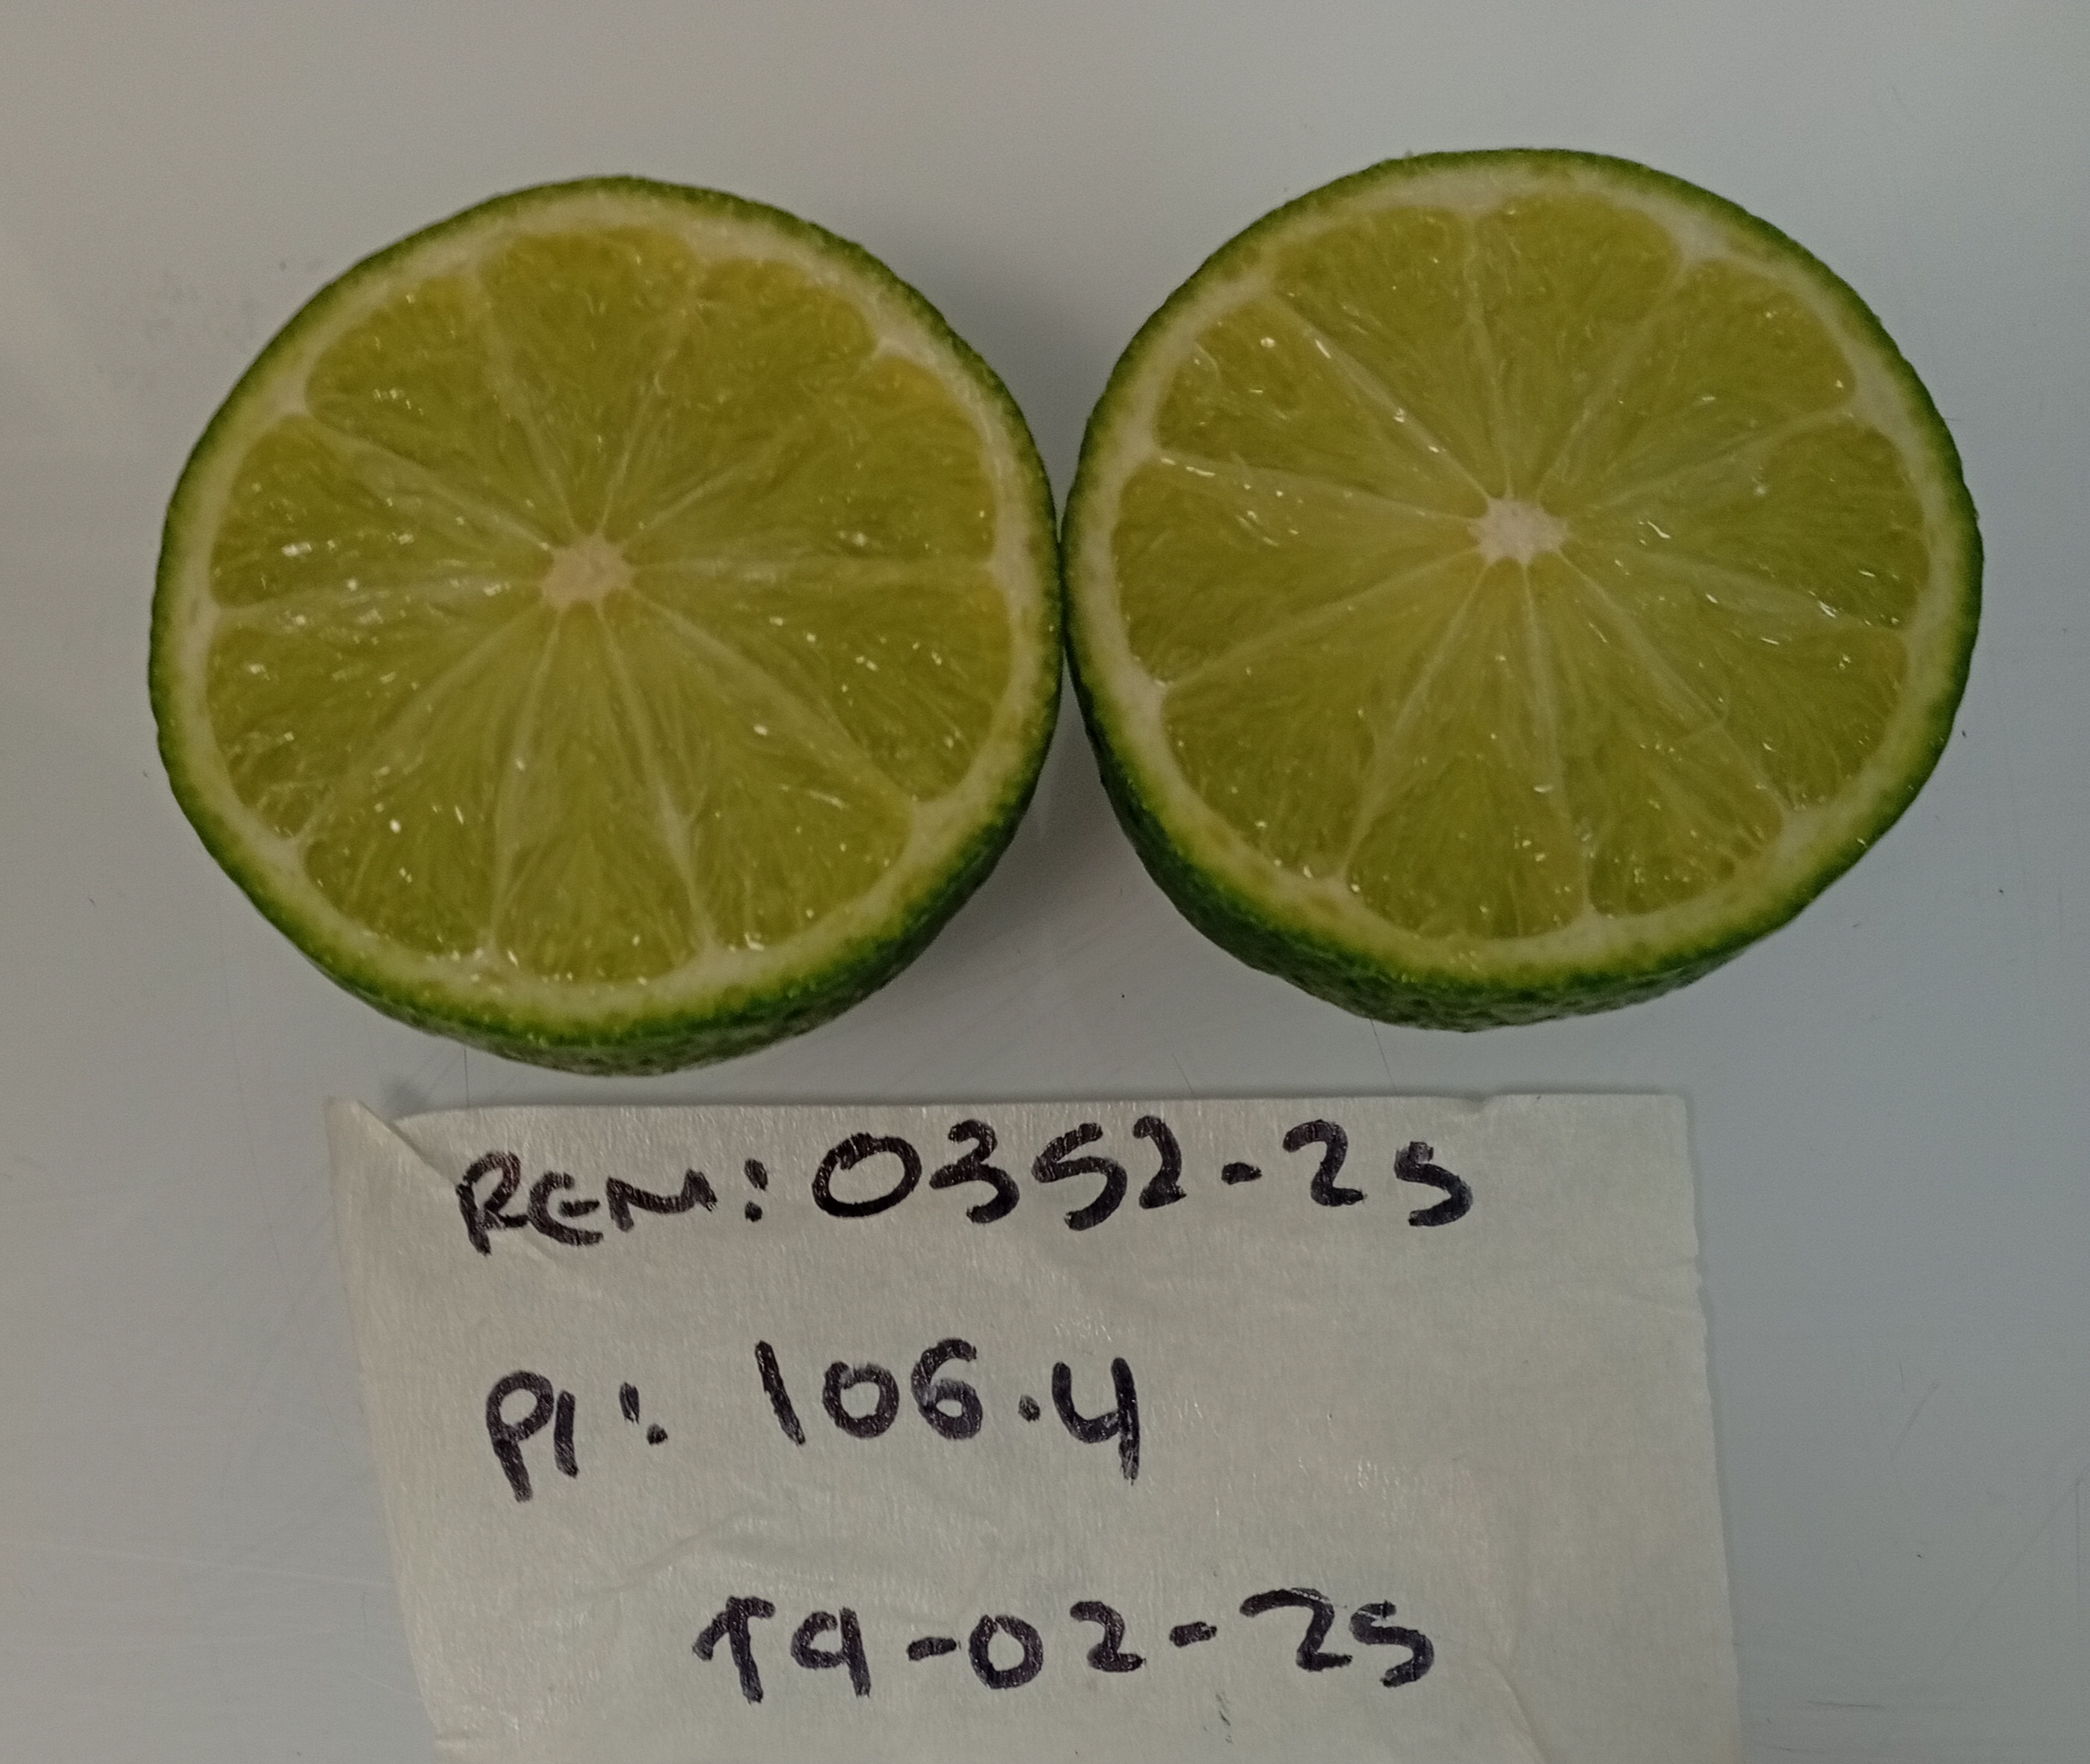 REM: 0352-25
PI: 106.4
19-02-25